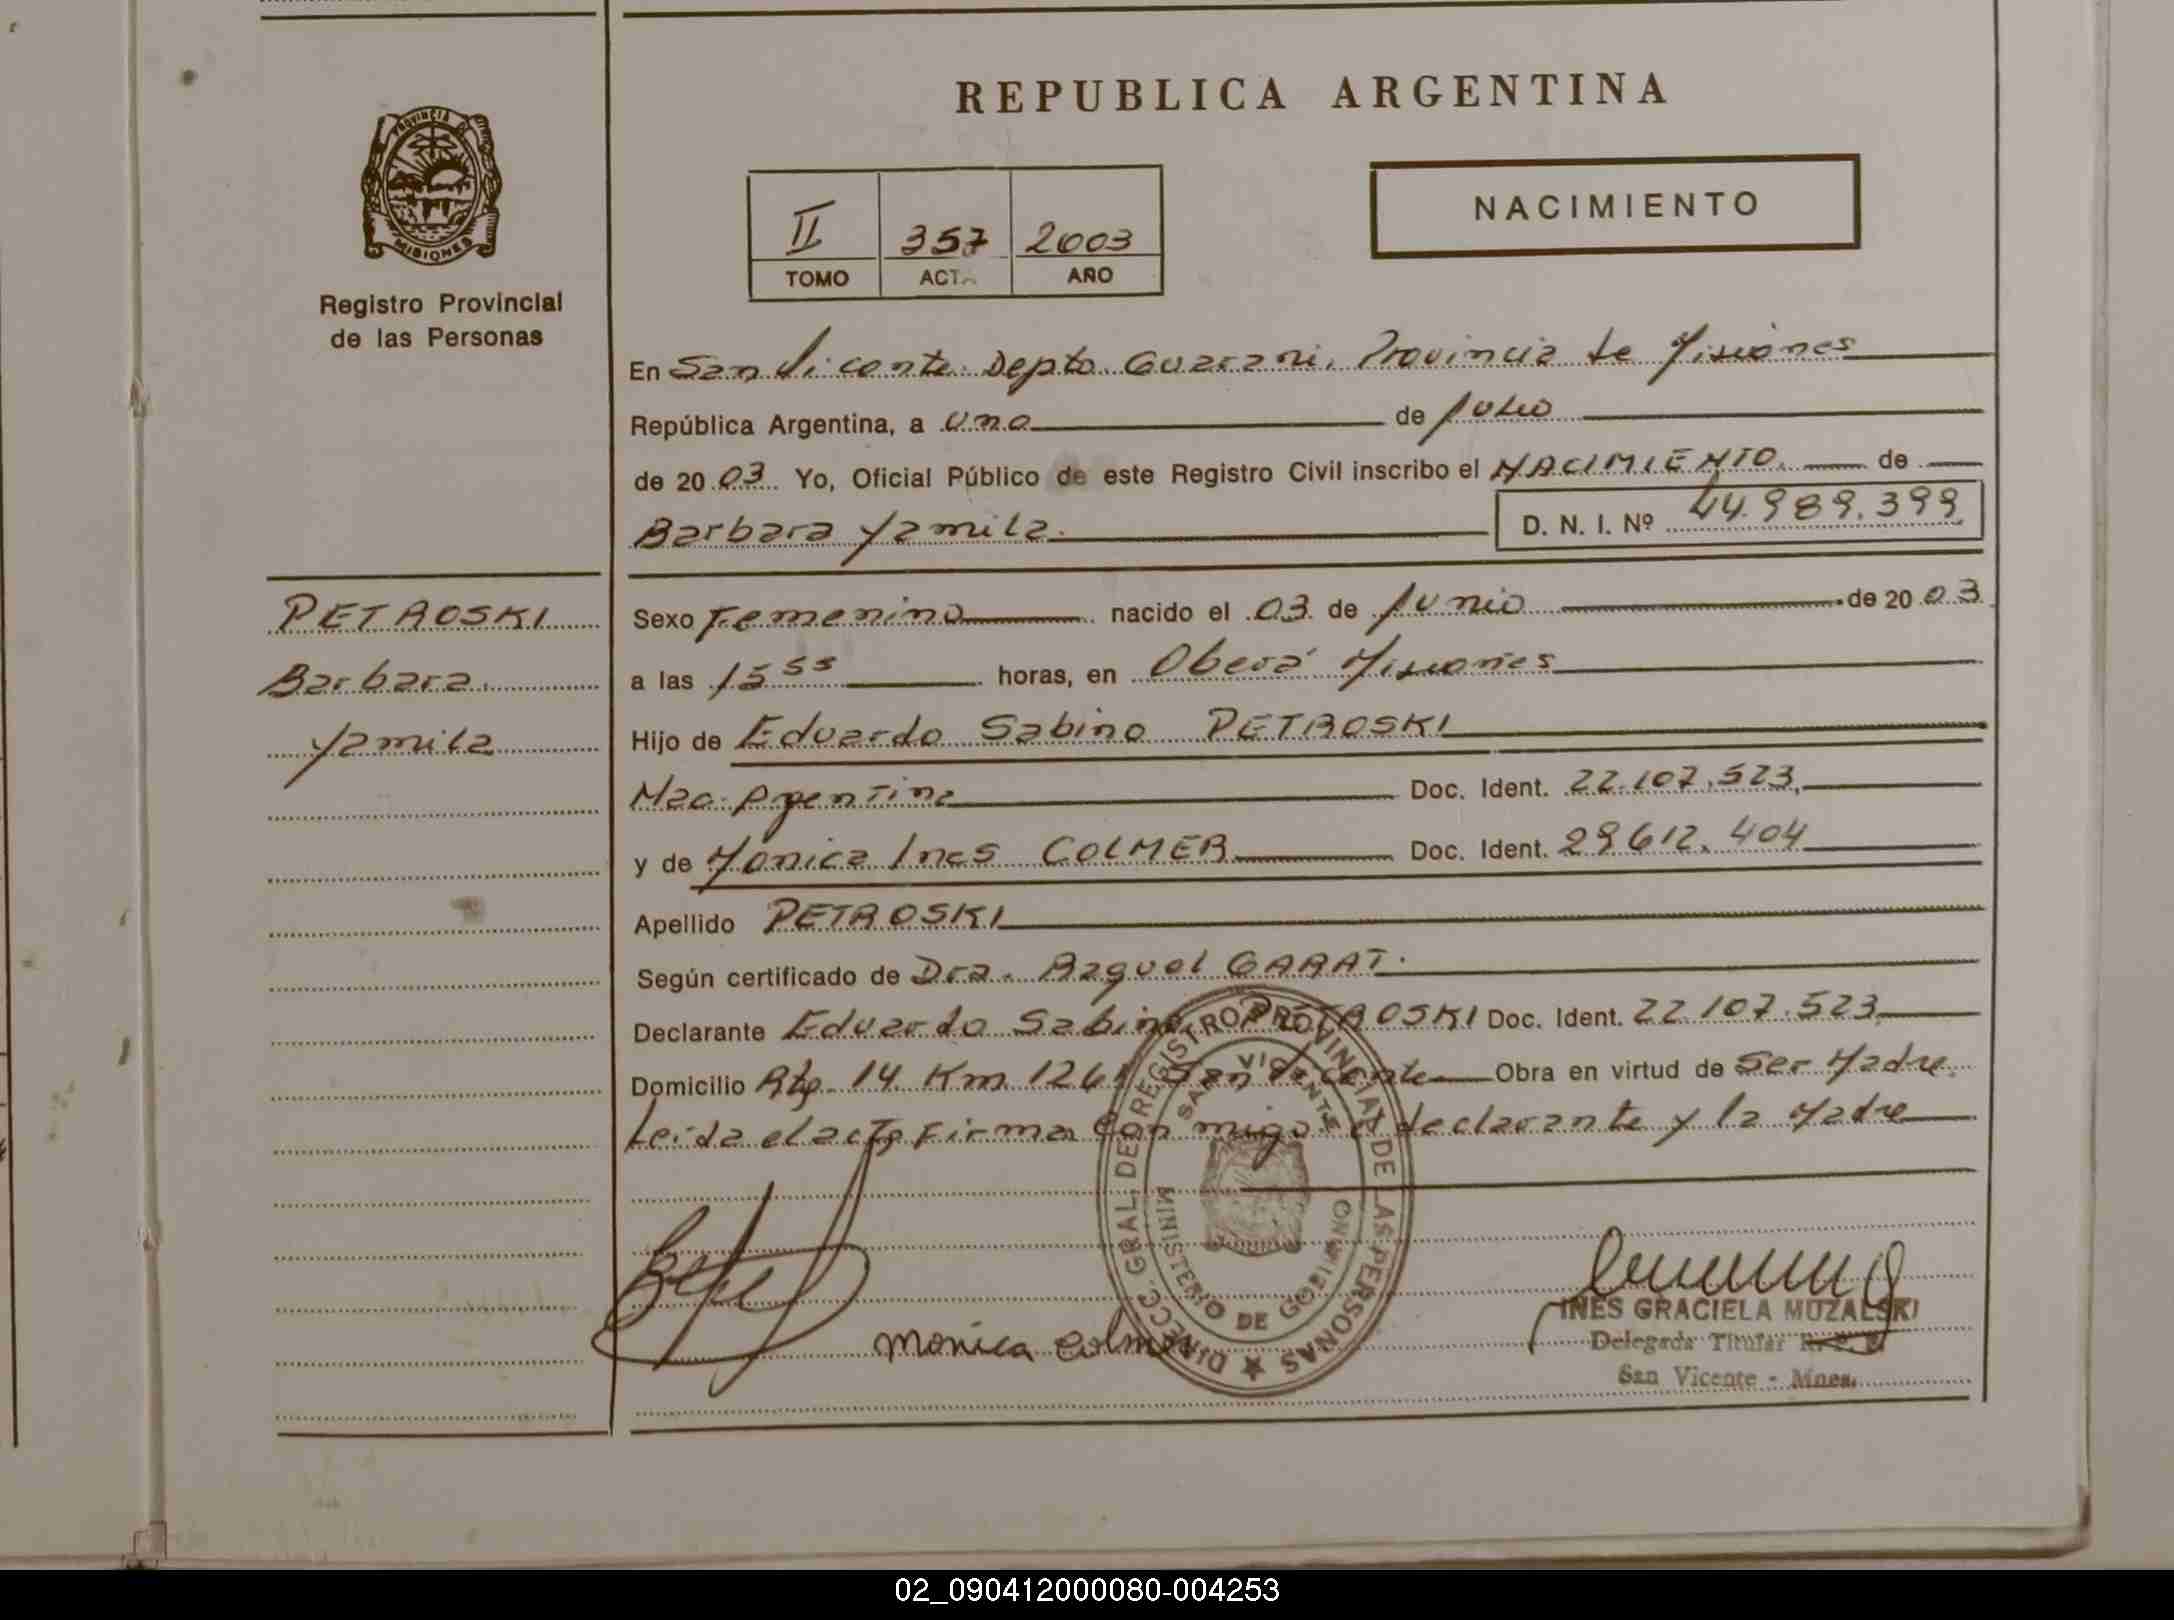 REPUBLICA ARGENTINA
PROVINCIA DE
MISIONES
Registro Provincial
de las Personas
II 357 2003
TOMO ACTA AÑO
NACIMIENTO
En San Vicente Depto. Guarani, Provincia de Misiones
República Argentina, a uno de Julio
de 20 03 Yo, Oficial Público de este Registro Civil inscribo el NACIMIENTO. de
Barbara Yamila. D. N. I. Nº 44.989.399
PETROSKI
Barbara
Yamila
Sexo Femenino nacido el 03 de Junio de 20 03
a las 15 55 horas, en Oberá Misiones
Hijo de Eduardo Sabino PETROSKI
Nac. Argentina Doc. Ident. 22.107.523
y de Monica Ines COLMER Doc. Ident. 29612.404
Apellido PETROSKI
Según certificado de Dra. Raquel GARAT.
Declarante Eduardo Sabino PETROSKI Doc. Ident. 22 107.523
Domicilio Rta. 14 Km 1261 San Vicente Obra en virtud de Ser Padre
Leida el acta Firma Con migo el declarante y la Madre
DIRECC. GRAL. DE REGISTRO PROVINCIAL DE LAS PERSONAS
SAN VICENTE
MINISTERIO DE GOBIERNO
Monica Colmer
INES GRACIELA MUZALSKI
Delegada Titular R. P. P.
San Vicente - Mnes.
02_090412000080-004253